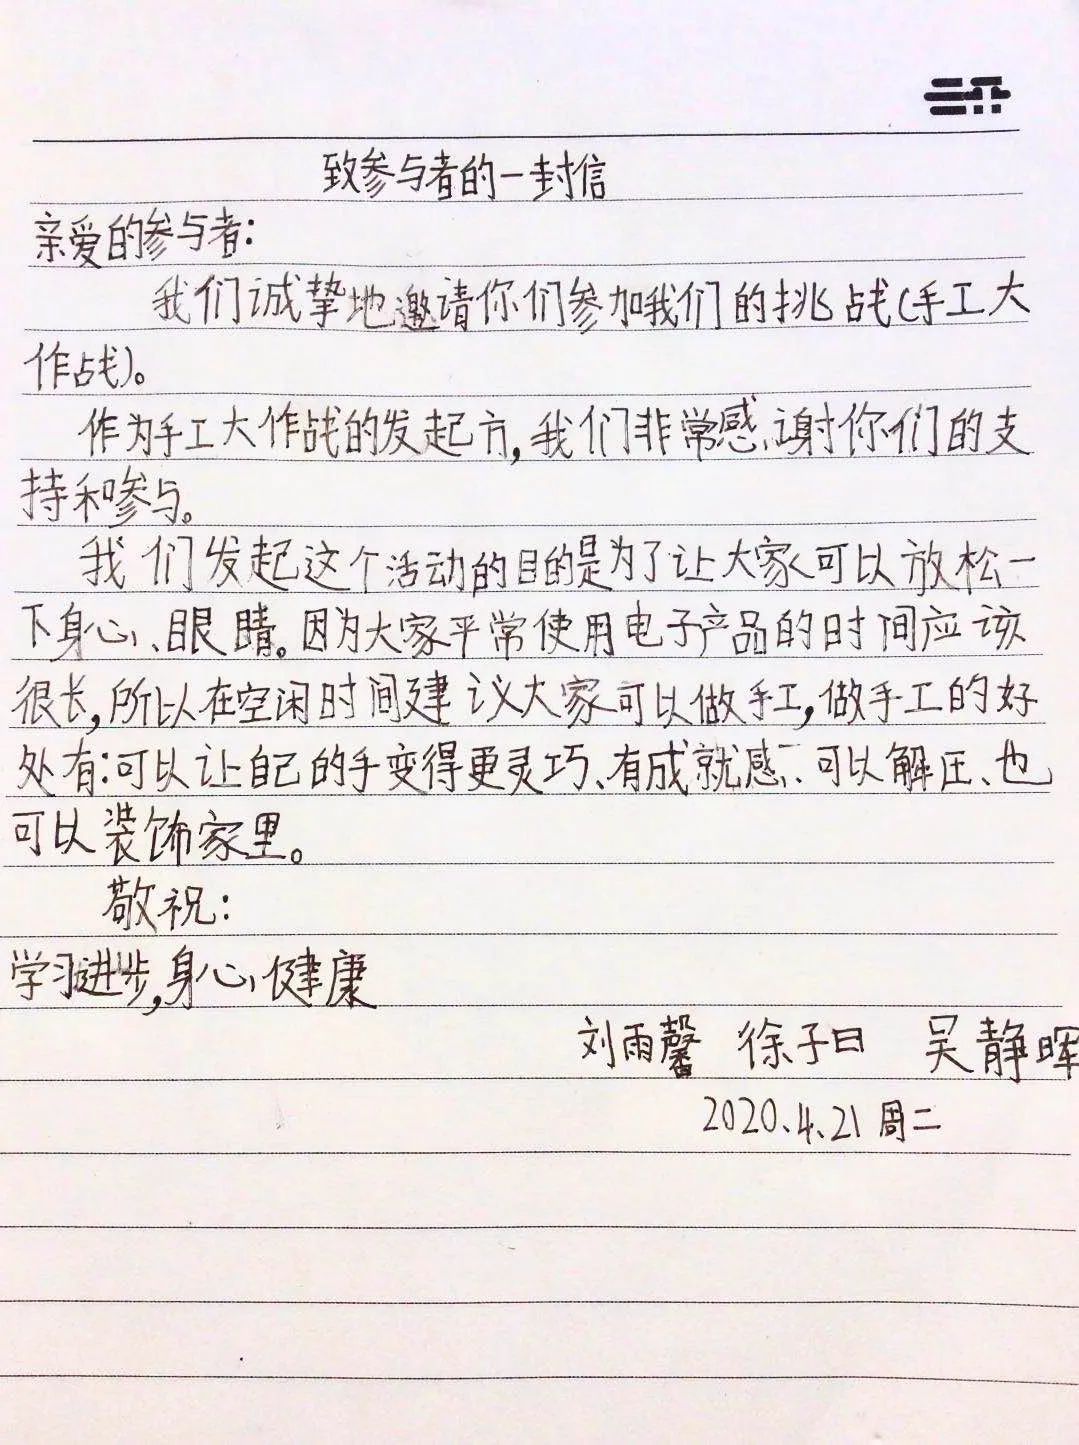 致参与者的一封信
亲爱的参与者:
我们诚挚地邀请你们参加我们的挑战(手工大
作战)。
作为手工大作战的发起方,我们非常感谢你们的支
持和参与。
我们发起这个活动的目的是为了让大家可以放松一
下身心、眼睛。因为大家平常使用电子产品的时间应该
很长,所以在空闲时间建议大家可以做手工,做手工的好
处有:可以让自己的手变得更灵巧、有成就感、可以解压、也
可以装饰家里。
敬祝:
学习进步,身心健康
刘雨馨 徐子曰 吴静晖
2020.4.21 周二